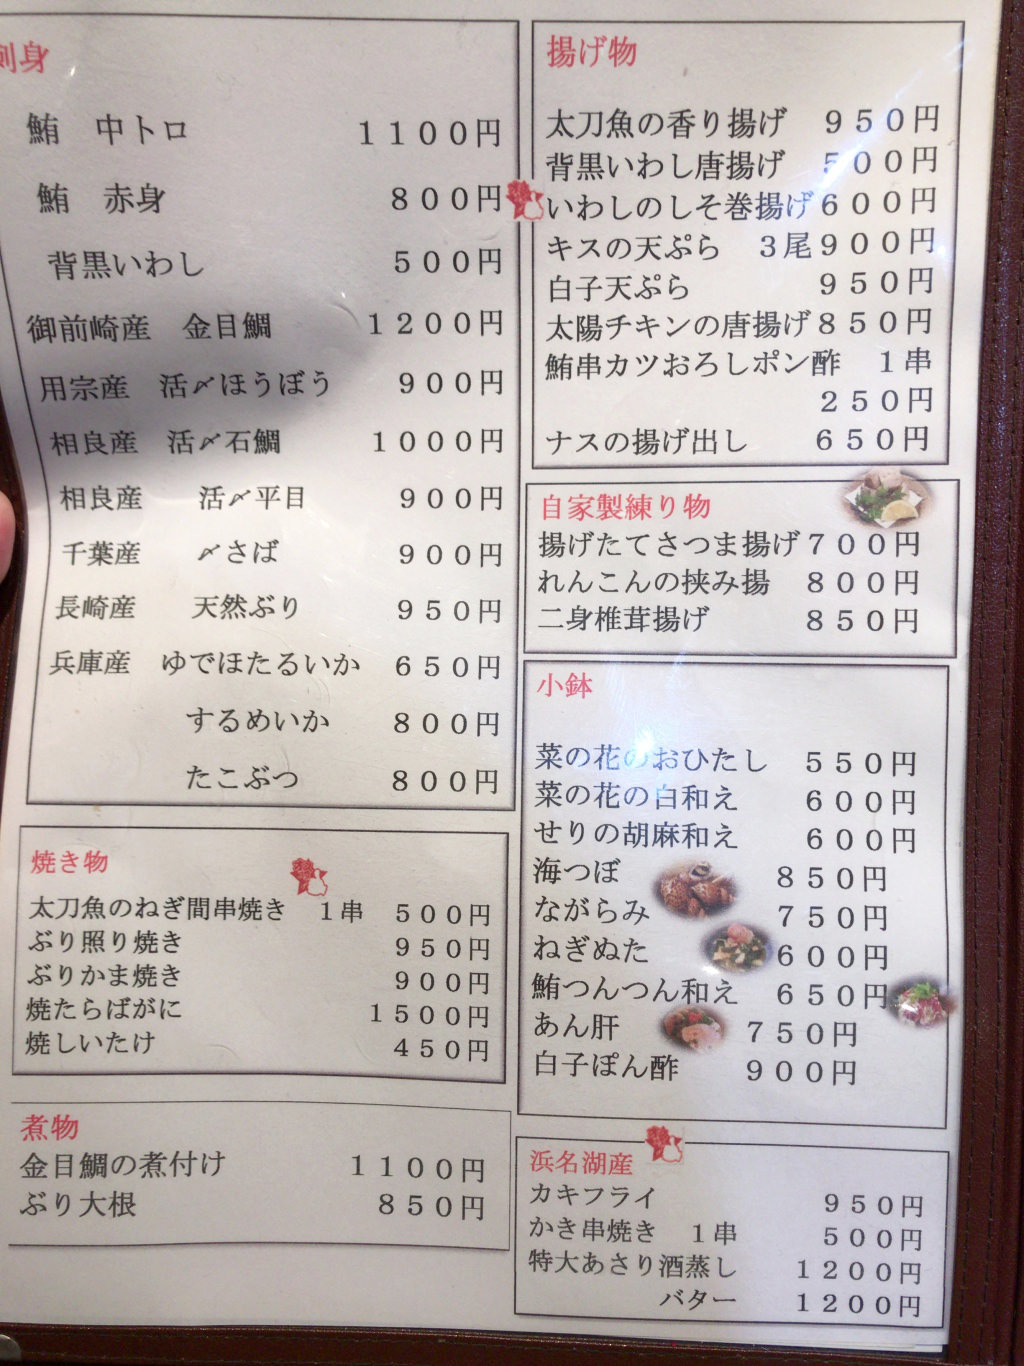 刺身
鮪　中トロ　1100円
鮪　赤身　800円
背黒いわし　500円
御前崎産　金目鯛　1200円
用宗産　活〆ほうぼう　900円
相良産　活〆石鯛　1000円
相良産　活〆平目　900円
千葉産　〆さば　900円
長崎産　天然ぶり　950円
兵庫産　ゆでほたるいか　650円
するめいか　800円
たこぶつ　800円
焼き物
太刀魚のねぎ間串焼き　1串　500円
ぶり照り焼き　950円
ぶりかま焼き　900円
焼たらばがに　1500円
焼しいたけ　450円
煮物
金目鯛の煮付け　1100円
ぶり大根　850円
揚げ物
太刀魚の香り揚げ　950円
背黒いわし唐揚げ　500円
いわしのしそ巻揚げ　600円
キスの天ぷら　3尾　900円
白子天ぷら　950円
太陽チキンの唐揚げ　850円
鮪串カツおろしポン酢　1串
250円
ナスの揚げ出し　650円
自家製練り物
揚げたてさつま揚げ　700円
れんこんの挟み揚　800円
二身椎茸揚げ　850円
小鉢
菜の花のおひたし　550円
菜の花の白和え　600円
せりの胡麻和え　600円
海つぼ　850円
ながらみ　750円
ねぎぬた　600円
鮪つんつん和え　650円
あん肝　750円
白子ぽん酢　900円
浜名湖産
カキフライ　950円
かき串焼き　1串　500円
特大あさり酒蒸し　1200円
バター　1200円